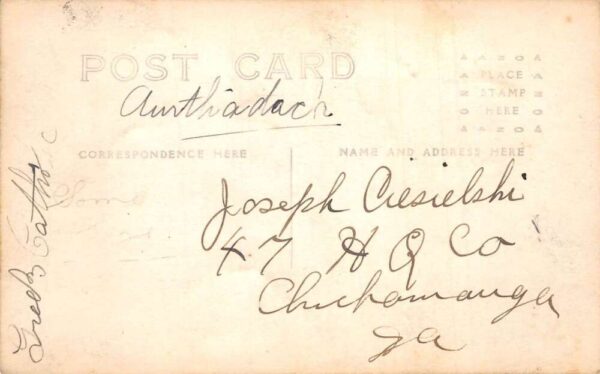 POST CARD
AZOA
PLACE
STAMP
HERE
AZOA
CORRESPONDENCE HERE
NAME AND ADDRESS HERE
Some
Joseph Ciesielski
47 H Q Co
Chickamauga
Ga
Greek Catholic